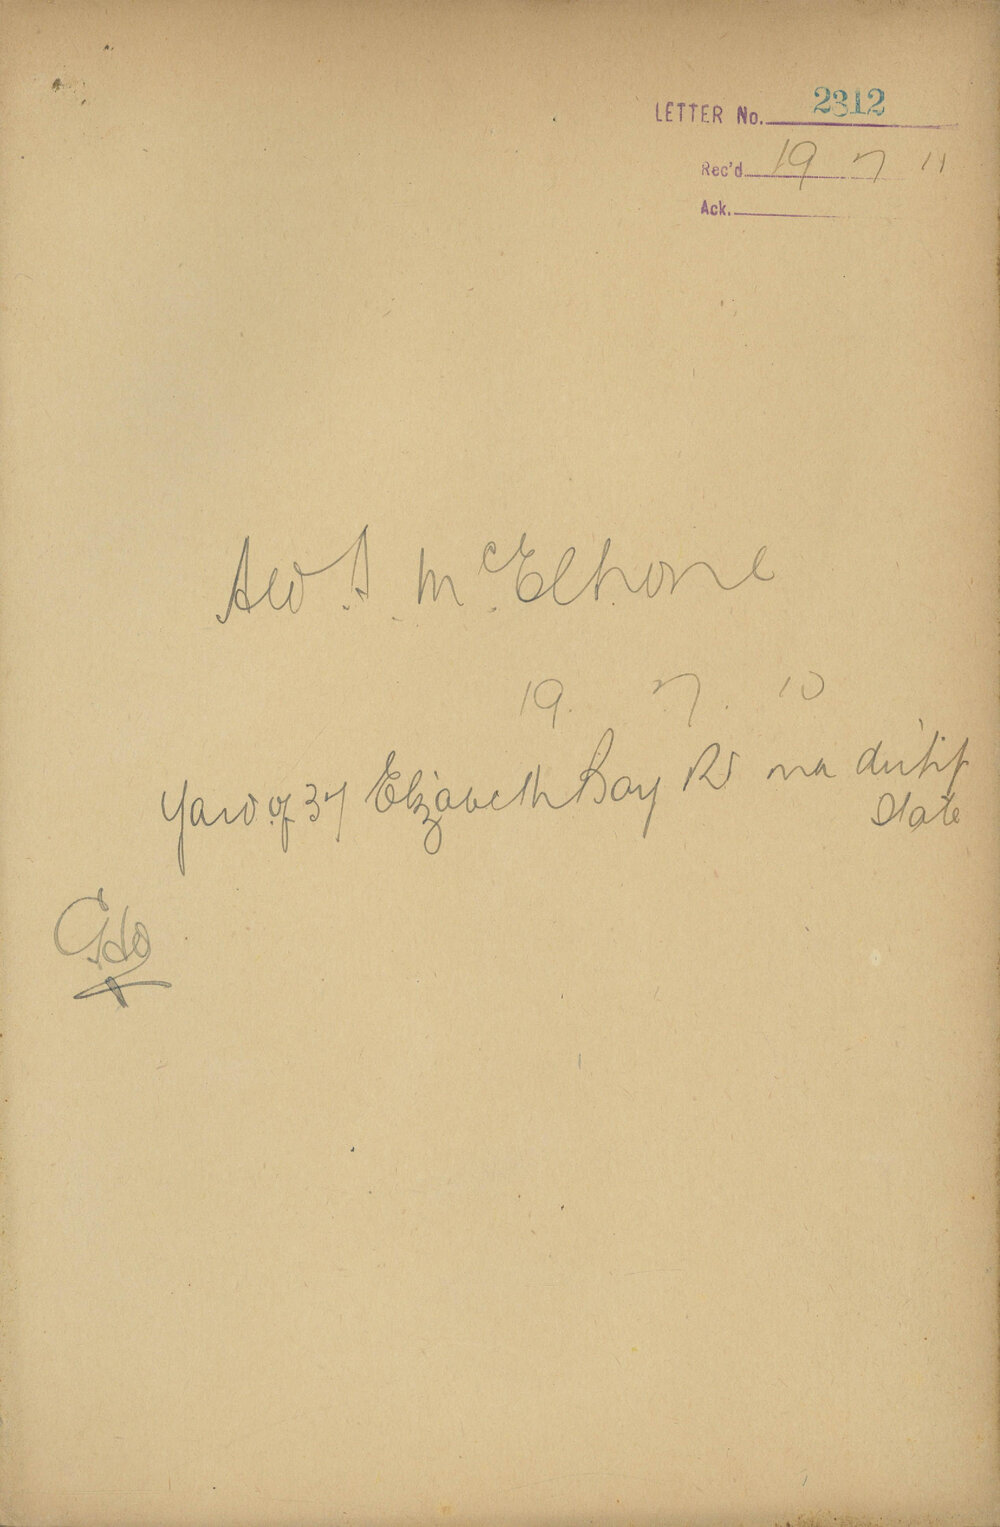 LETTER No. 2312
Rec'd 19 7 11
Ack.
Ald. A. McElhone
19. 7. 10
Yard of 37 Elizabeth Bay Rd in a dirty
state
CHO